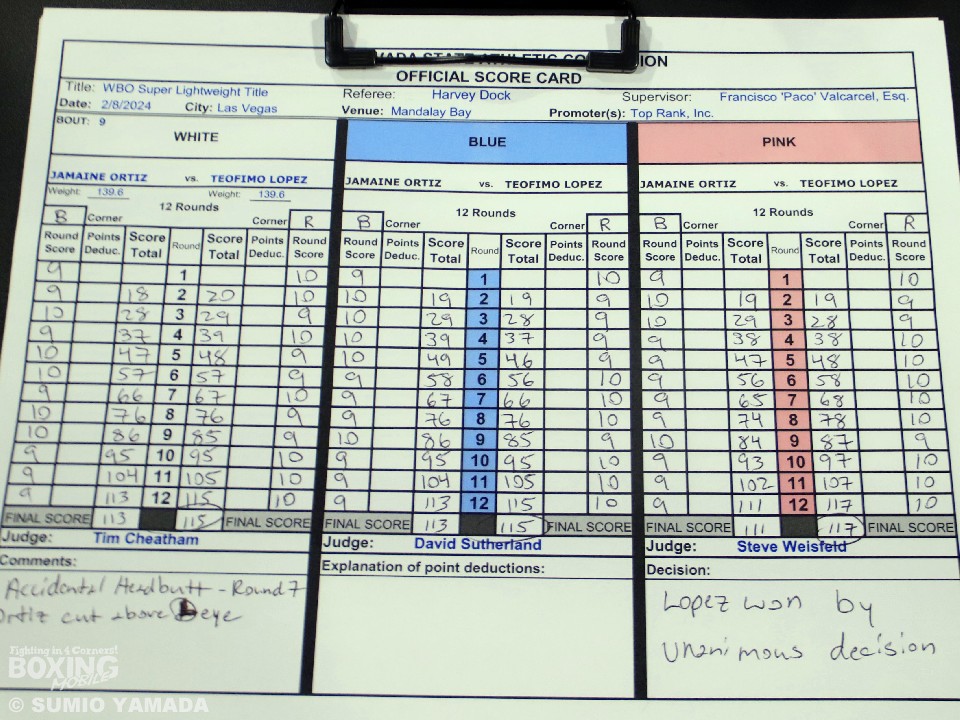 VADA STATE ATHLETIC CO ION
OFFICIAL SCORE CARD
Title: WBO Super Lightweight Title Referee: Harvey Dock Supervisor: Francisco 'Paco' Valcarcel, Esq.
Date: 2/8/2024 City: Las Vegas Venue: Mandalay Bay Promoter(s): Top Rank, Inc.
BOUT: 9
WHITE BLUE PINK
JAMAINE ORTIZ vs. TEOFIMO LOPEZ JAMAINE ORTIZ vs. TEOFIMO LOPEZ JAMAINE ORTIZ vs. TEOFIMO LOPEZ
Weight: 139.6 Weight: 139.6
12 Rounds 12 Rounds 12 Rounds
B Corner Corner R B Corner Corner R B Corner Corner R
Round Points Score Round Score Points Round Round Points Score Round Score Points Round Round Points Score Round Score Points Round
Score Deduc. Total Total Deduc. Score Score Deduc. Total Total Deduc. Score Score Deduc. Total Total Deduc. Score
9 1 10 9 1 10 9 1 10
9 18 2 20 10 10 19 2 19 9 10 19 2 19 9
10 28 3 29 9 10 29 3 28 9 10 29 3 28 9
9 37 4 39 10 10 39 4 37 9 9 38 4 38 10
10 47 5 48 9 10 49 5 46 9 9 47 5 48 10
10 57 6 57 9 9 58 6 56 10 9 56 6 58 10
9 66 7 67 10 9 67 7 66 10 9 65 7 68 10
10 76 8 76 9 9 76 8 76 10 9 74 8 78 10
10 86 9 85 9 10 86 9 85 9 10 84 9 87 9
9 95 10 95 10 9 95 10 95 10 9 93 10 97 10
9 104 11 105 10 9 104 11 105 10 9 102 11 107 10
9 113 12 115 10 9 113 12 115 10 9 111 12 117 10
FINAL SCORE 113 115 FINAL SCORE FINAL SCORE 113 115 FINAL SCORE FINAL SCORE 111 117 FINAL SCORE
Judge: Tim Cheatham Judge: David Sutherland Judge: Steve Weisfeld
Comments: Explanation of point deductions: Decision:
Accidental Headbutt - Round 7
Ortiz cut above L eye
Lopez won by
unanimous decision
Fighting in 4 Corners!
BOXING
MOBILE
© SUMIO YAMADA